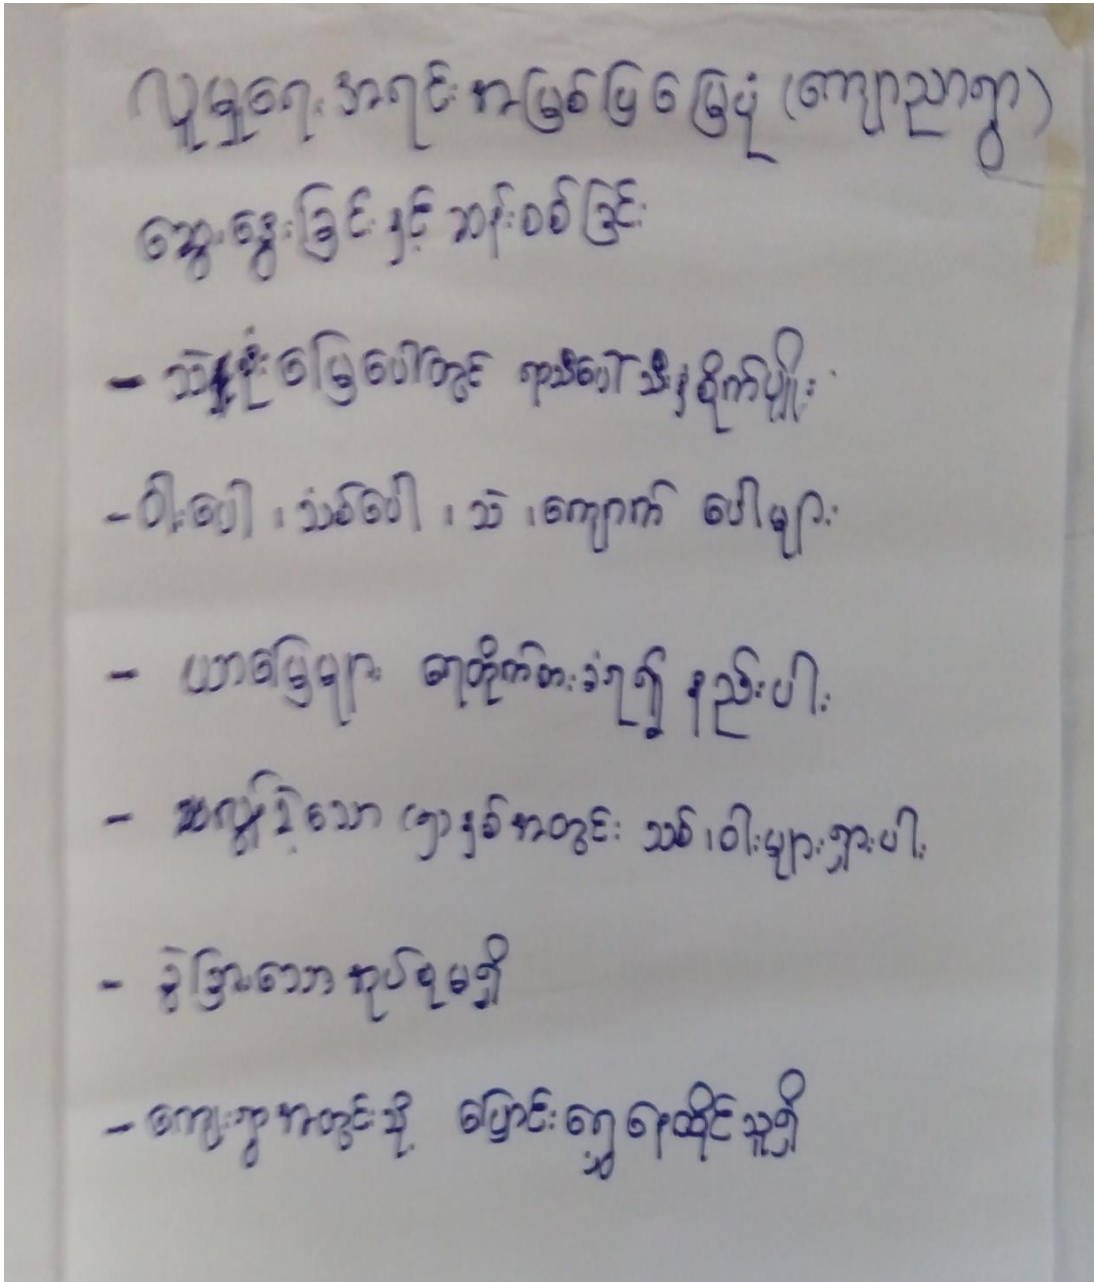 လူမှုရေး အရင်းအမြစ်ပြ မြေပုံ (ကျောညာရွာ)
ဆွေးနွေးခြင်းနှင့် ဆန်းစစ်ခြင်း
- သဲနုန်းမြေပေါ်တွင် ရာသီပေါ်သီးနှံစိုက်ပျိုး
- ဝါးပေါ၊ သစ်ပေါ၊ သဲ၊ ကျောက် ပေါများ
- ယာမြေများ ရေတိုက်စားခံရ၍ နည်းပါး
- လွန်ခဲ့သော (၅)နှစ်အတွင်း သစ်၊ ဝါးများရှားပါး
- ခွဲခြားသော အုပ်စုမရှိ
- ကျေးရွာအတွင်းသို့ ပြောင်းရွှေ့နေထိုင်သူရှိ